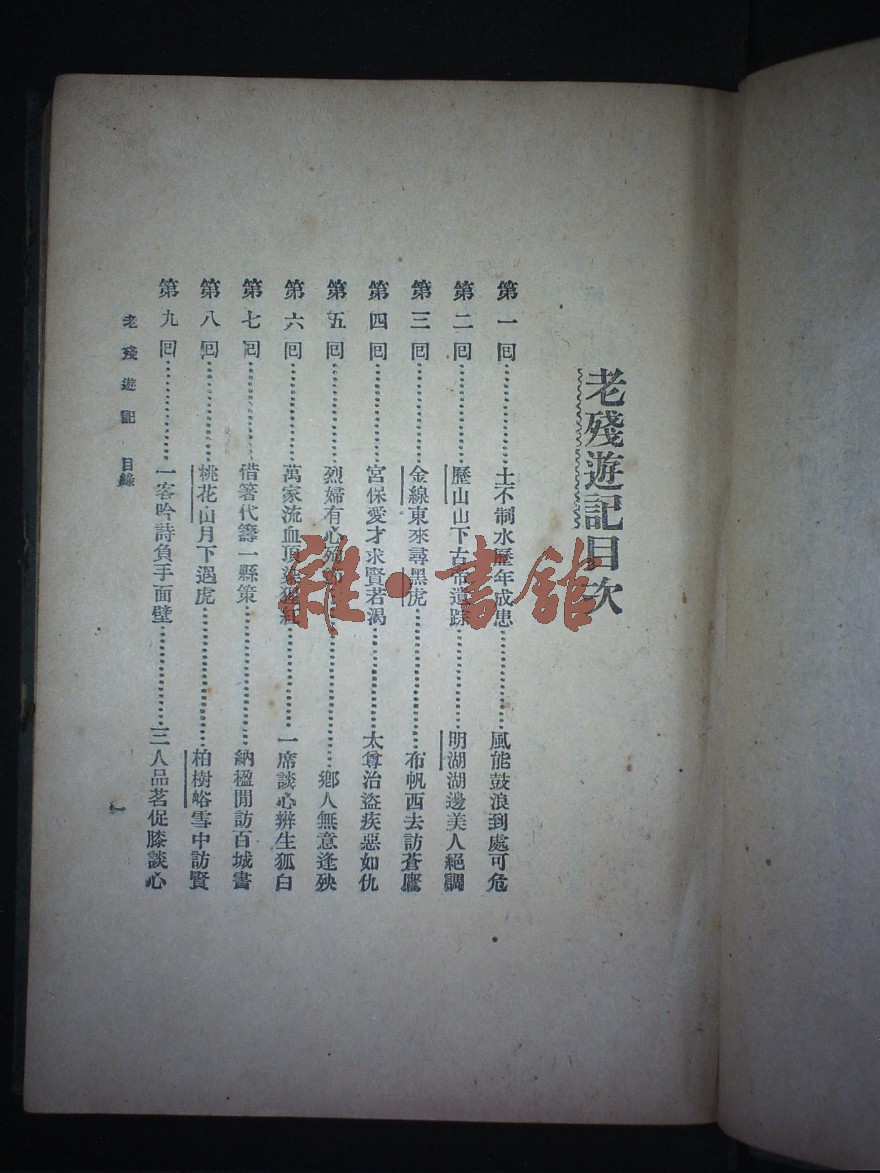 老殘遊記目次
第一回……………土不制水歷年成患……………風能鼓浪到處可危
第二回……………歷山山下古帝遺踪……………明湖湖邊美人絕調
第三回……………金線東來尋黑虎……………布帆西去訪蒼鷹
第四回……………宮保愛才求賢若渴……………太尊治盜疾惡如仇
第五回……………烈婦有心殉……………鄉人無意逢殃
第六回……………萬家流血頂染猩紅……………一席談心辨生狐白
第七回……………借箸代籌一縣策……………納楹閒訪百城書
第八回……………桃花山月下遇虎……………柏樹峪雪中訪賢
第九回……………一客吟詩負手面壁……………三人品茗促膝談心
老殘遊記 目錄
一
雜·書館